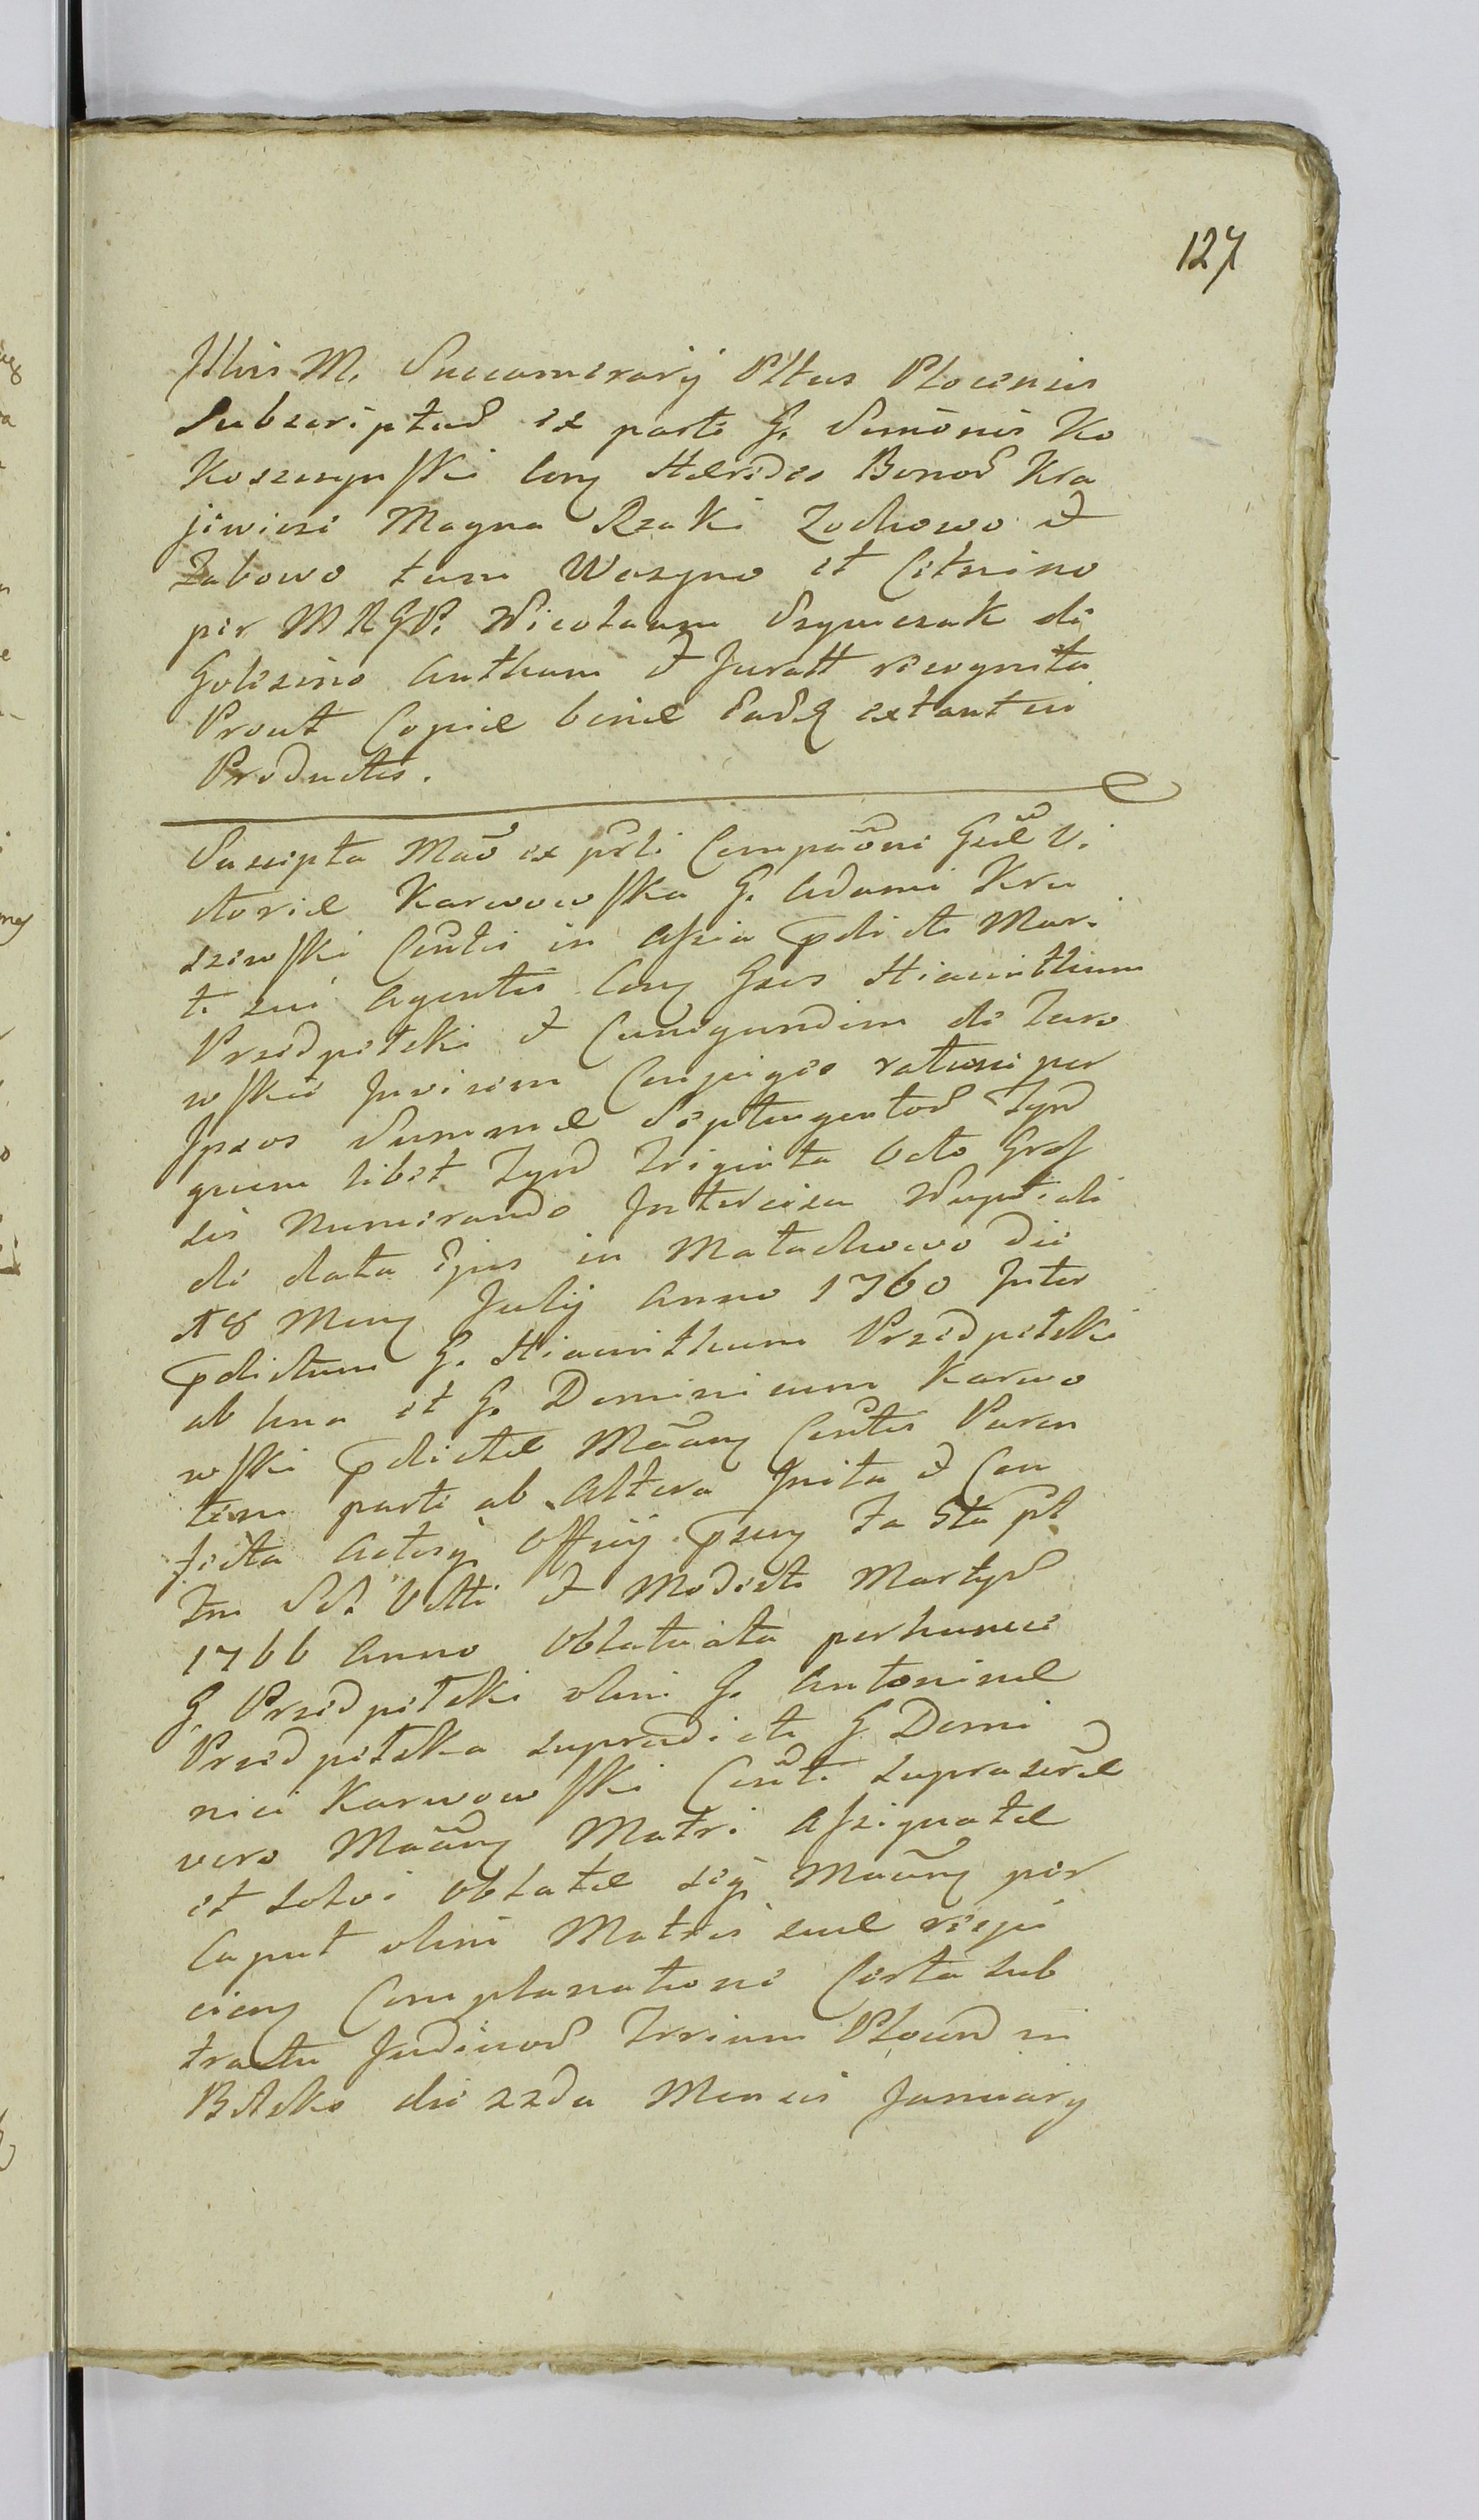 127
Illris M. Succamerarij Pltus Plocensis
Subscriptas ex parte G. Simonis Ko
Koszczynſki Cong Heredes Bonor Kra
jewice Magna Rzaki Zochowo et
Zabowo tum Woszyno et Cetnino
per MRGP. Nicolaum Szymczak de
Golezino Authum et Juratt recognita
Prout Copiæ binæ Eadg extant in
Productis.
Suscepta ex prte Compaōne Gsæ Vi
ctoriæ Karwowſka G. Adami Kra
szewſki Cōntis in aſsia pdicti Mari
ti sui Agentis Cong Gsos Hiacinthum
Przedpełski et Cunegundim de Zuro
wſkie Invicem Conjuges ratione per
Ipsos Summæ Septingentor Tynf
quem libet Tynf Triginta Octo Groſ
sis Numerando Intercisa Nuptiali
de data Ejus in Małachowo die
18 Meng Julij Anno 1760 Inter
pdictum G. Hiacinthum Przedpełski
ab Una et G. Dominicum Karwo
wſki pdictæ Māang Cōntis Paren
tem parte ab Altera Inita et Con
fecta Actisq Officij psing Fa 5ta pt
Fm SS. Viti et Modesti Martyr
1766 Anno Oblatata perhunce
G Przedpełski olim G. Antoninæ
Przedpełska supradicti G Domi
nici Karwowſki Cōnti suprascræ
vero Māang Matri Aſsignatæ
et Solvi Oblatæ siq Māang per
Caput olim Matris suæ respi
cieng Complanatione Certa sub
tractu Judicior Trrium Plocen in
Bielsko die 22da Mensis January